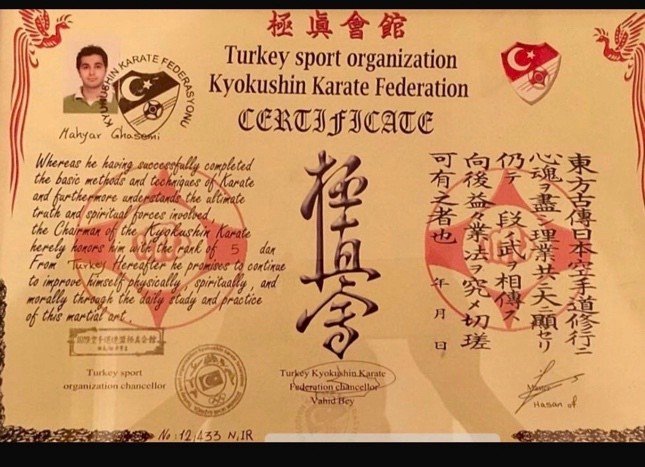 極眞會館
Turkey sport organization
Kyokushin Karate Federation
CERTIFICATE
KYOKUSHIN KARATE FEDERASYONU
Mahyar Ghasemi
Whereas he having successfully completed
the basic methods and techniques of Karate
and furthermore understands the ultimate
truth and spiritual forces involved,
the Chairman of the Kyokushin Karate
hereby honors him with the rank of 5 dan
From Turkey Hereafter he promises to continue
to improve himself physically, spiritually, and
morally through the daily study and practice
of this martial art.
極真會
東方古傳日本空手道修行ニ
心魂ヲ盡シ理業共ニ大ニ顯セリ
仍テ 段ノ武ヲ相傳ス
向後益々業法ヲ究メ切瑳
可有之者也 年 月 日
Turkey sport
organization chancellor
Turkey Kyokushin Karate
Federation chancellor
Vahid Bey
Master
Hasan of
No: 12,433 N, IR